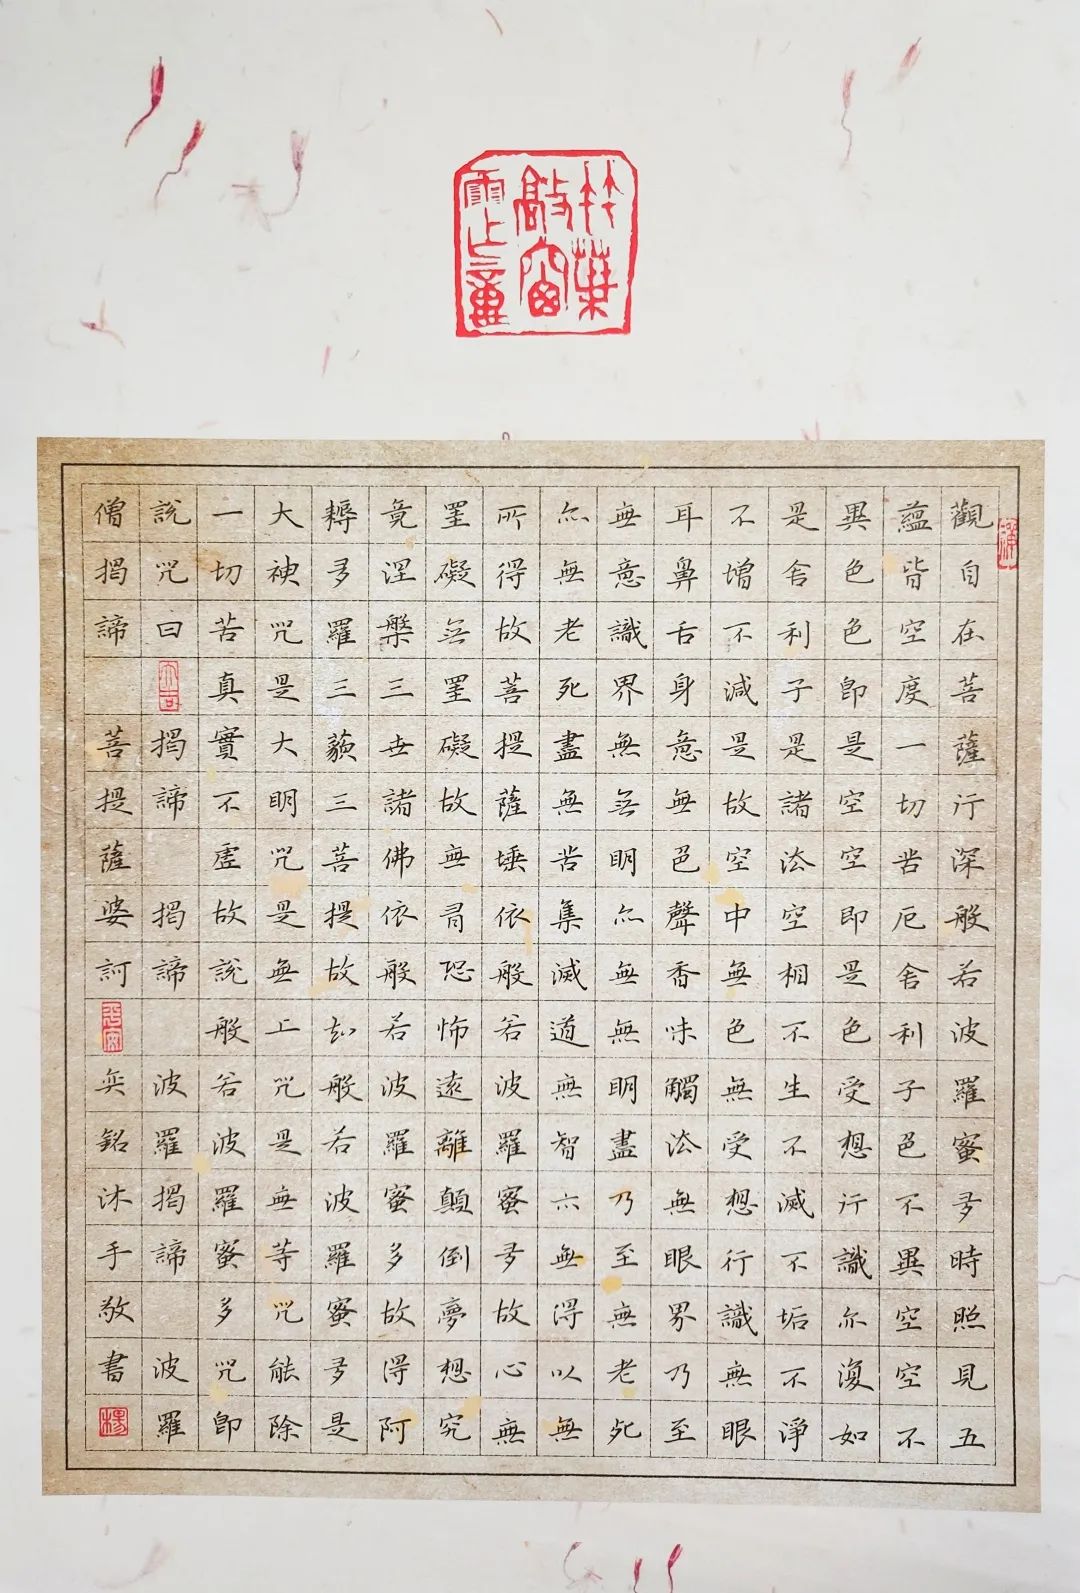 竹葉
敲窗
觀自在菩薩行深般若波羅蜜多時照見五
蘊皆空度一切苦厄舍利子色不異空空不
異色色即是空空即是色受想行識亦復如
是舍利子是諸法空相不生不滅不垢不淨
不增不減是故空中無色無受想行識無眼
耳鼻舌身意無色聲香味觸法無眼界乃至
無意識界無無明亦無無明盡乃至無老死
亦無老死盡無苦集滅道無智亦無得以無
所得故菩提薩埵依般若波羅蜜多故心無
罣礙無罣礙故無有恐怖遠離顛倒夢想究
竟涅槃三世諸佛依般若波羅蜜多故得阿
耨多羅三藐三菩提故知般若波羅蜜多是
大神咒是大明咒是無上咒是無等咒能除
一切苦真實不虛故說般若波羅蜜多咒即
說咒曰 大吉 揭諦 揭諦 波羅揭諦 波羅
僧揭諦 菩提薩婆訶 平安 奕銘沐手敬書 楊